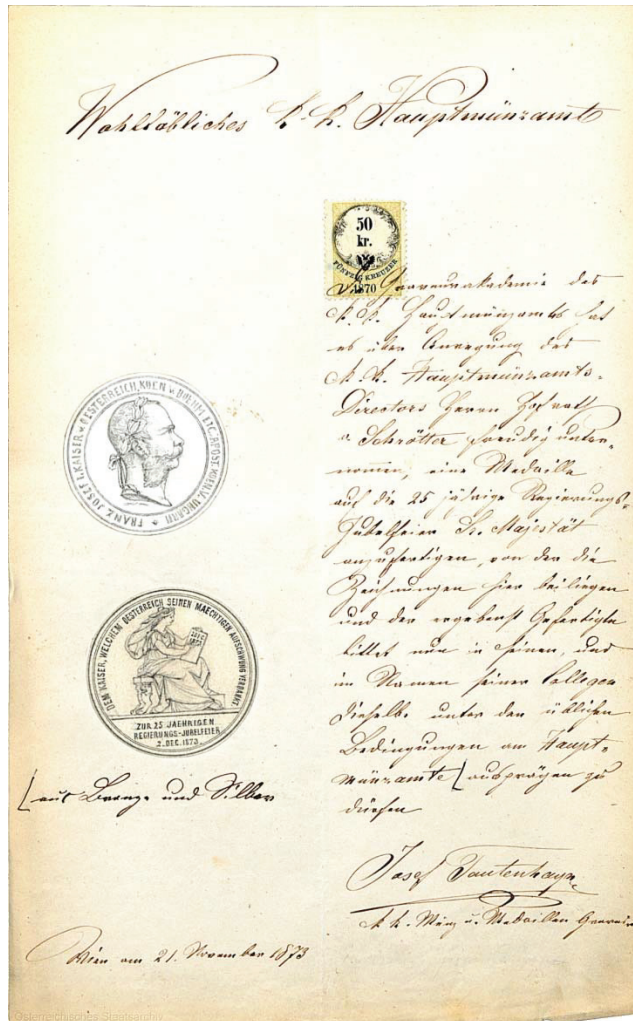 Wohllöbliches k. k. Hauptmünzamt
50
kr.
FÜNFZIG KREUZER
1870
Graveurakademie des
k. k. Hauptmünzamts hat
es über Anregung des
k. k. Hauptmünzamts-
Directors Herrn Hofrath
v. Schrötter freudig unter-
nommen, eine Medaille
auf die 25 jährige Regierungs-
Jubelfeier Sr. Majestät
anzufertigen, von der die
Zeichnungen hier beiliegen
und der ergebenst Gefertigte
bittet nun in seinen, und
im Namen seiner Collegen
dieselbe unter den üblichen
Bedingungen am Haupt-
münzamte ausprägen zu
dürfen
FRANZ JOSEF I. KAISER v. OESTERREICH, KOEN. v. BOEHM. ETC. APOST. KOEN. v. UNGARN
DEM KAISER, WELCHEM OESTERREICH SEINEN MAECHTIGEN AUFSCHWUNG VERDANKT
ZUR 25 JAEHRIGEN
REGIERUNGS-JUBELFEIER
2. DEC. 1873.
aus Bronze und Silber
Josef Tautenhayn
k. k. Münz u. Medaillen Graveur
Wien am 21. November 1873
© Österreichisches Staatsarchiv